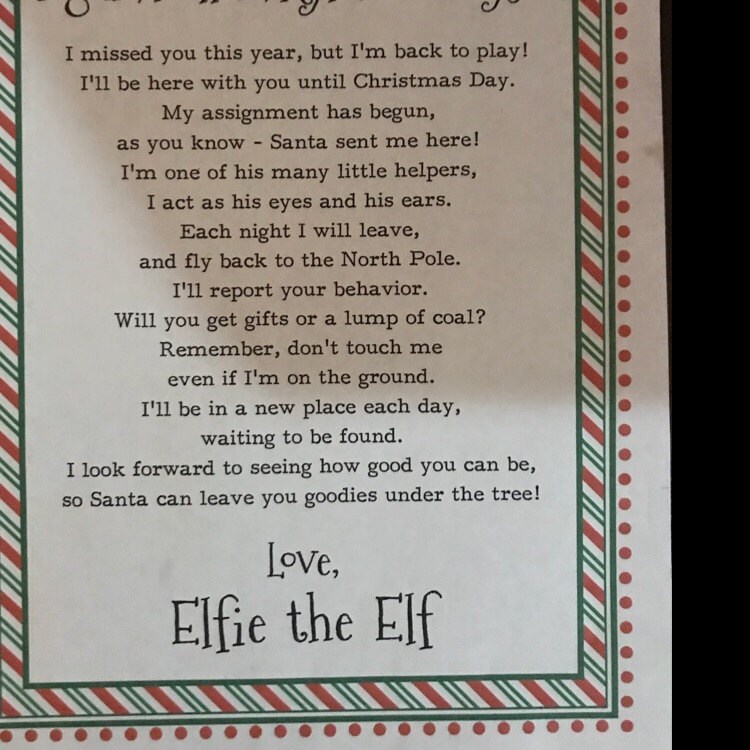 I missed you this year, but I'm back to play!
I'll be here with you until Christmas Day.
My assignment has begun,
as you know - Santa sent me here!
I'm one of his many little helpers,
I act as his eyes and his ears.
Each night I will leave,
and fly back to the North Pole.
I'll report your behavior.
Will you get gifts or a lump of coal?
Remember, don't touch me
even if I'm on the ground.
I'll be in a new place each day,
waiting to be found.
I look forward to seeing how good you can be,
so Santa can leave you goodies under the tree!
Love,
Elfie the Elf